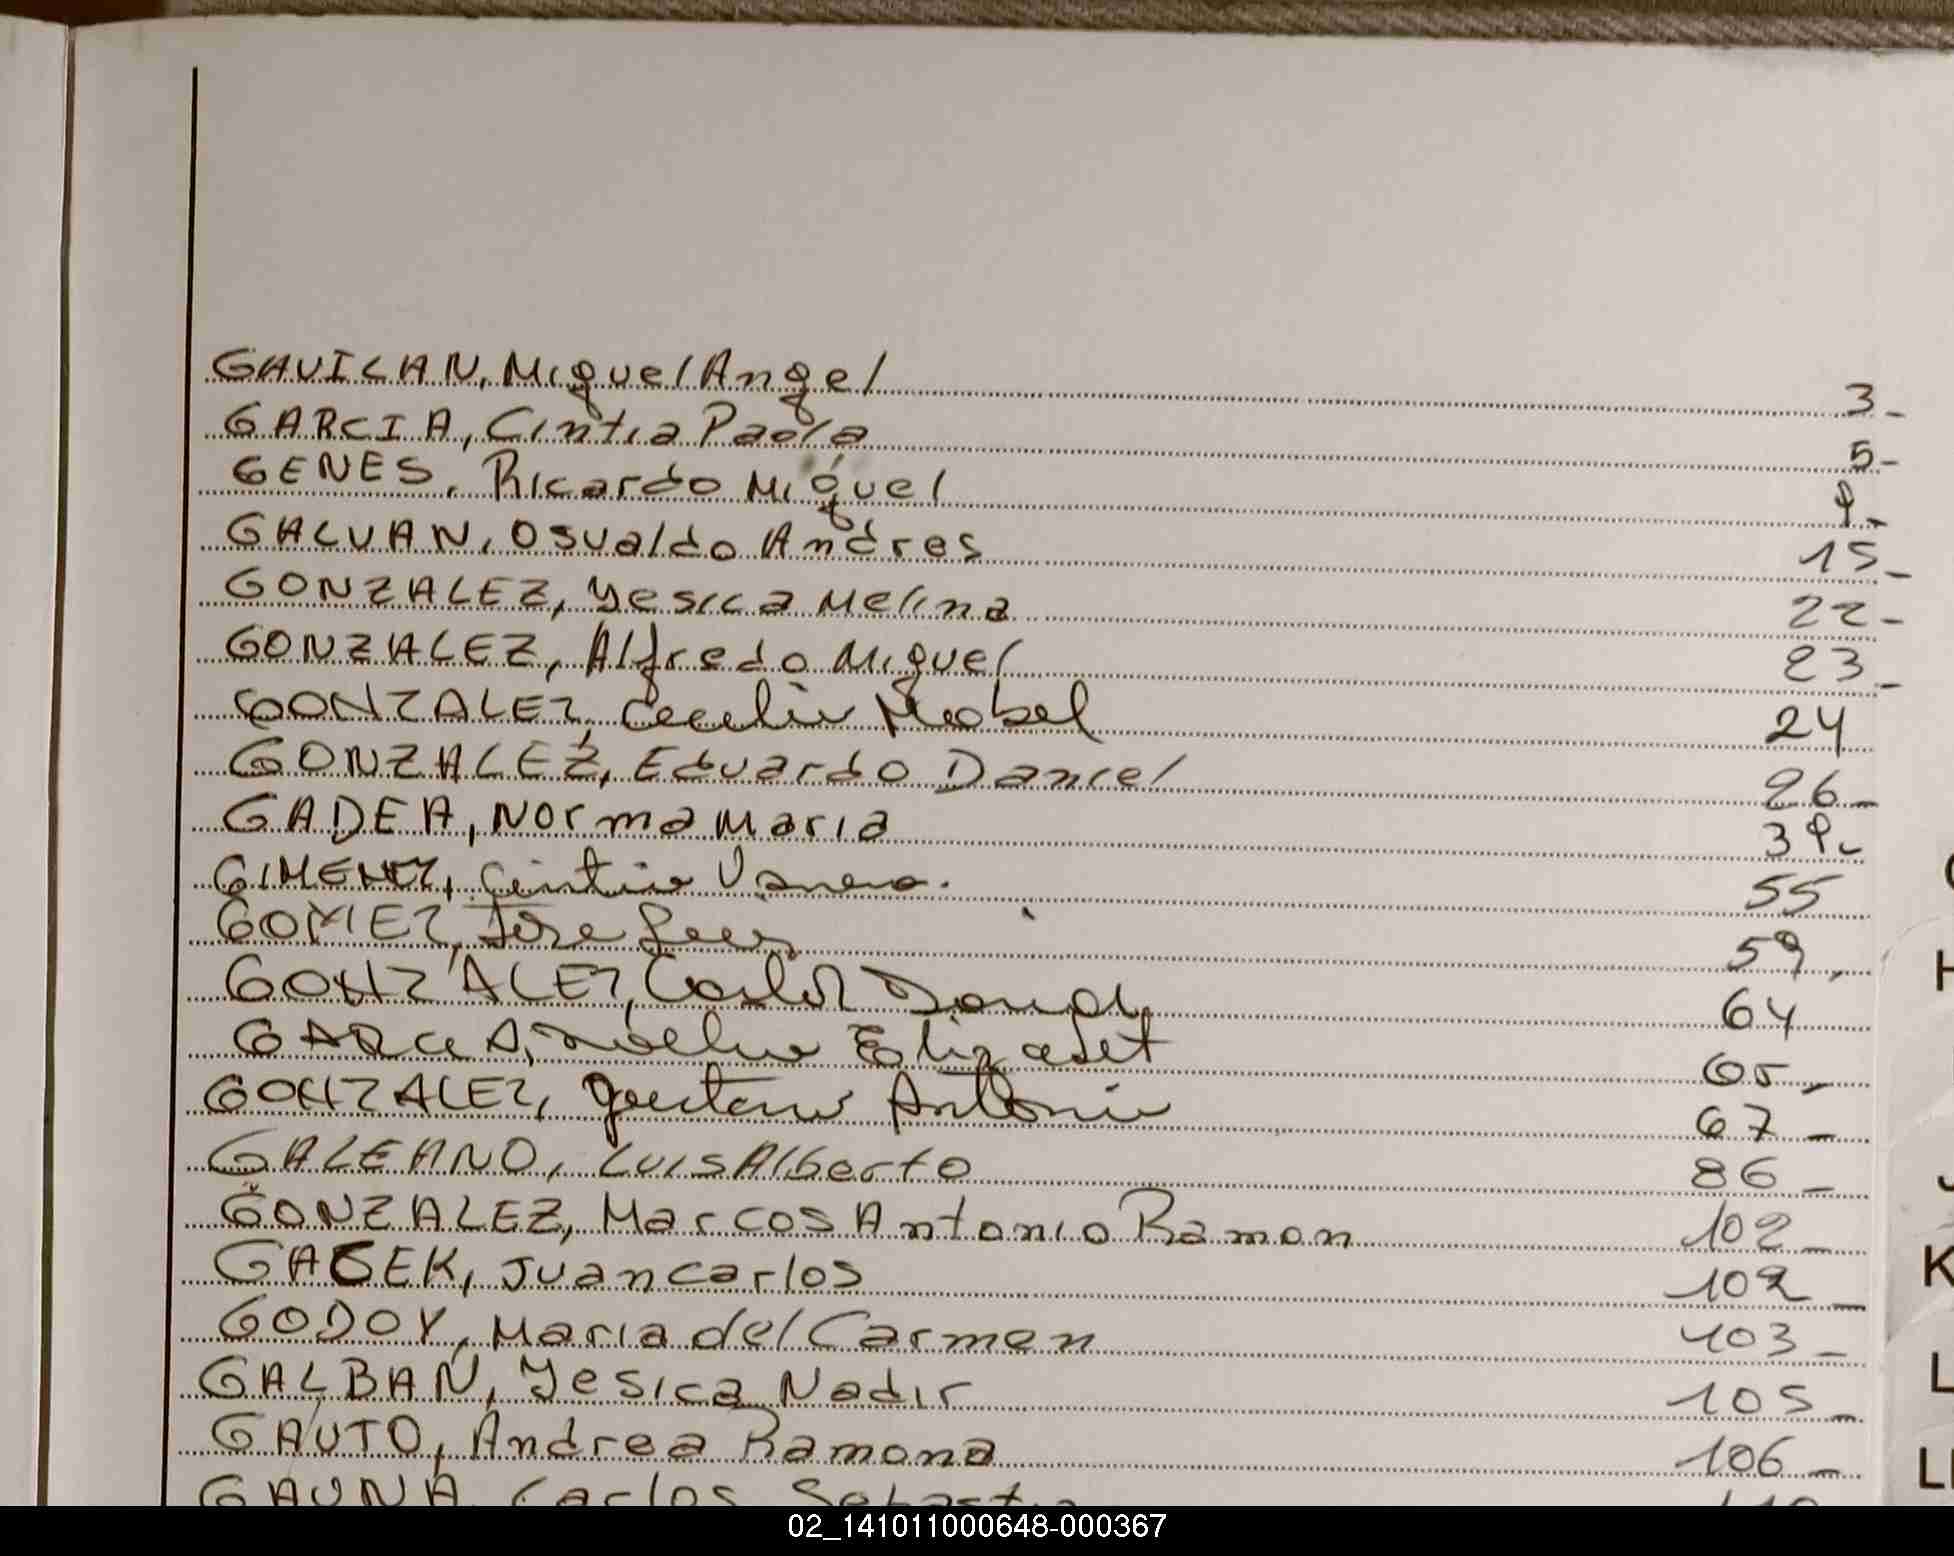 GAVILAN, Miguel Angel 3-
GARCIA, Cintia Paola 5-
GENES, Ricardo Miguel 9-
GALVAN, Osvaldo Andres 15-
GONZALEZ, Yesica Melina 22-
GONZALEZ, Alfredo Miguel 23-
GONZALEZ, Cecilia Mabel 24
GONZALEZ, Eduardo Daniel 26-
GADEA, Norma Maria 39-
GIMENEZ, Cintia Vanesa. 55
GOMEZ, Jose Luis 59,
GONZALEZ, Carlos Daniel 64
GARCIA, Noelia Elizabet 65-
GONZALEZ, Gustavo Antonio 67-
GALEANO, Luis Alberto 86-
GONZALEZ, Marcos Antonio Ramon 102-
GACEK, Juan Carlos 102-
GODOY, Maria del Carmen 103-
GALBAN, Yesica Nadir 105-
GAUTO, Andrea Ramona 106-
GAUNA, Carlos
H
K
L
LL
02_141011000648-000367